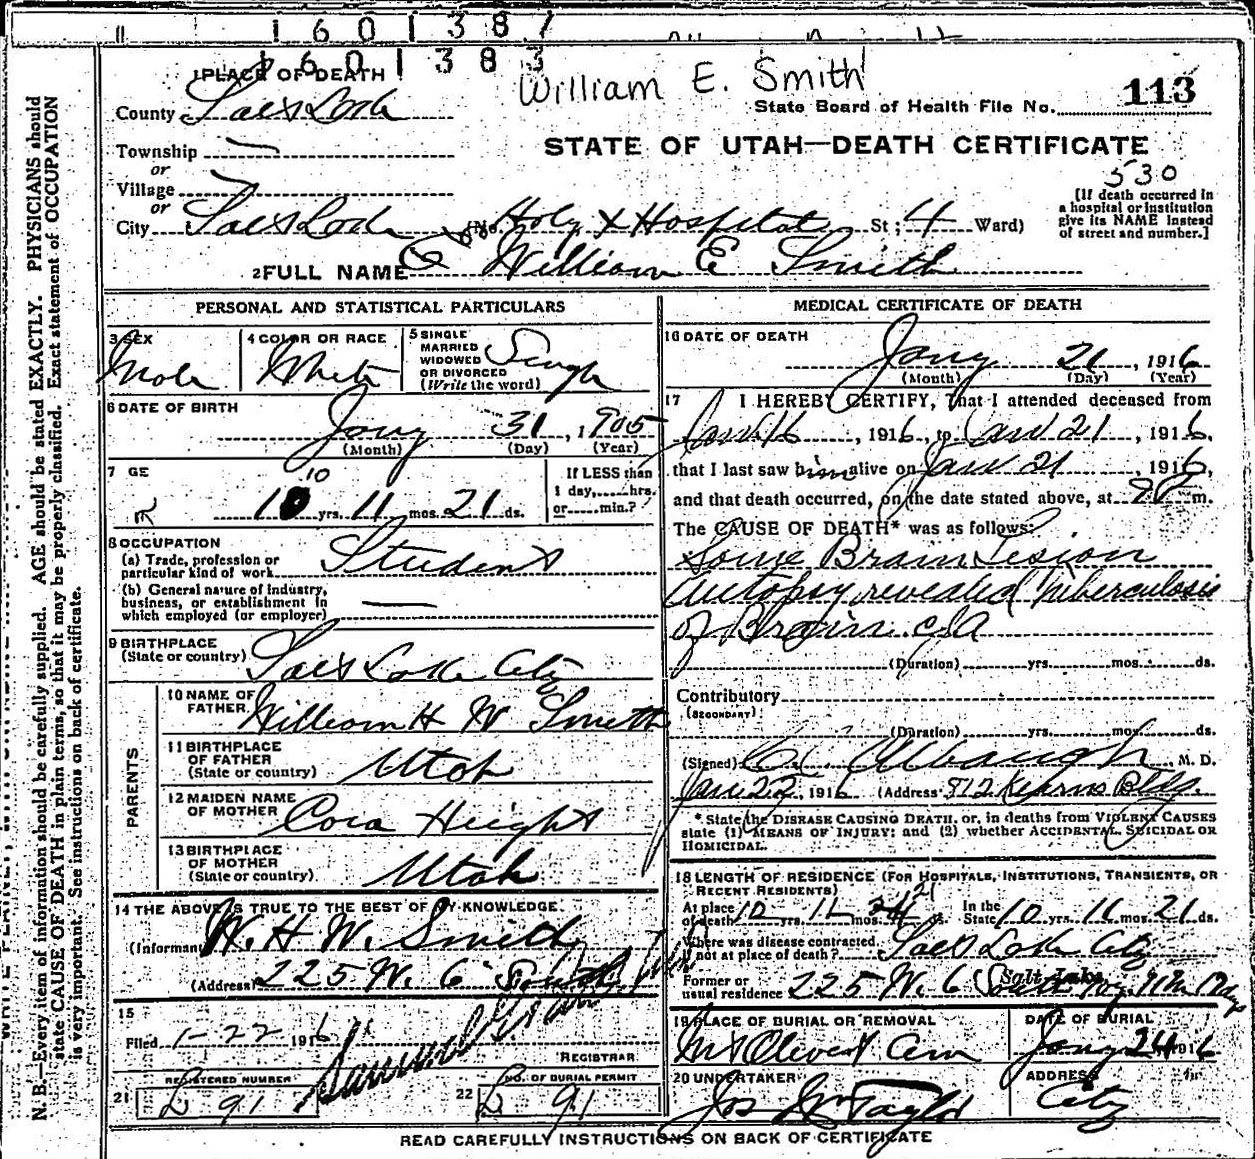 1601387
1601383
William E. Smith
1 PLACE OF DEATH
County Salt Lake
State Board of Health File No. 113
Township
or
Village
or
STATE OF UTAH—DEATH CERTIFICATE
530
[If death occurred in a hospital or institution give its NAME instead of street and number.]
City Salt Lake (No. Holy X Hospital St; 4 Ward)
2 FULL NAME William E Smith
PERSONAL AND STATISTICAL PARTICULARS
3 SEX Male
4 COLOR OR RACE White
5 SINGLE MARRIED WIDOWED OR DIVORCED (Write the word) Single
6 DATE OF BIRTH
Jany 31, 1905
(Month) (Day) (Year)
7 GE
10
10 yrs. 11 mos. 21 ds.
If LESS than 1 day,......hrs. or......min.?
8 OCCUPATION
(a) Trade, profession or particular kind of work Student
(b) General nature of industry, business, or establishment in which employed (or employer)
9 BIRTHPLACE (State or country) Salt Lake City
PARENTS
10 NAME OF FATHER William H W Smith
11 BIRTHPLACE OF FATHER (State or country) Utah
12 MAIDEN NAME OF MOTHER Cora Height
13 BIRTHPLACE OF MOTHER (State or country) Utah
14 THE ABOVE IS TRUE TO THE BEST OF MY KNOWLEDGE
(Informant W. H. W. Smith
(Address) 225 W. 6
15
Filed 1-22 1916
REGISTRAR
21 REGISTERED NUMBER 91
22 NO. OF BURIAL PERMIT 91
MEDICAL CERTIFICATE OF DEATH
16 DATE OF DEATH
Jany 21, 1916
(Month) (Day) (Year)
17 I HEREBY CERTIFY, That I attended deceased from
Jan 16, 1916, to Jan 21, 1916,
that I last saw him alive on Jan 21, 1916,
and that death occurred, on the date stated above, at m.
The CAUSE OF DEATH* was as follows:
Some Brain Lesion
Autopsy revealed Tuberculosis
of Brain.
(Duration) yrs. mos. ds.
Contributory
(SECONDARY)
(Duration) yrs. mos. ds.
(Signed) Albaugh, M. D.
Jan 22, 1916 (Address 812 Kearns Bldg.
*State the DISEASE CAUSING DEATH, or, in deaths from VIOLENT CAUSES
state (1) MEANS OF INJURY; and (2) whether ACCIDENTAL, SUICIDAL OR
HOMICIDAL.
18 LENGTH OF RESIDENCE (FOR HOSPITALS, INSTITUTIONS, TRANSIENTS, OR
RECENT RESIDENTS)
At place of death 10 yrs. 11 mos. 21 ds. In the State 10 yrs. 11 mos. 21 ds.
Where was disease contracted, if not at place of death? Salt Lake City
Former or usual residence 225 W. 6
Salt Lake
19 PLACE OF BURIAL OR REMOVAL Mt Olivet Cem
DATE OF BURIAL Jany 24 1916
20 UNDERTAKER Jos Wm Taylor
ADDRESS City
READ CAREFULLY INSTRUCTIONS ON BACK OF CERTIFICATE
N. B.—Every item of information should be carefully supplied. AGE should be stated EXACTLY. PHYSICIANS should
state CAUSE OF DEATH in plain terms, so that it may be properly classified. Exact statement of OCCUPATION
is very important. See instructions on back of certificate.